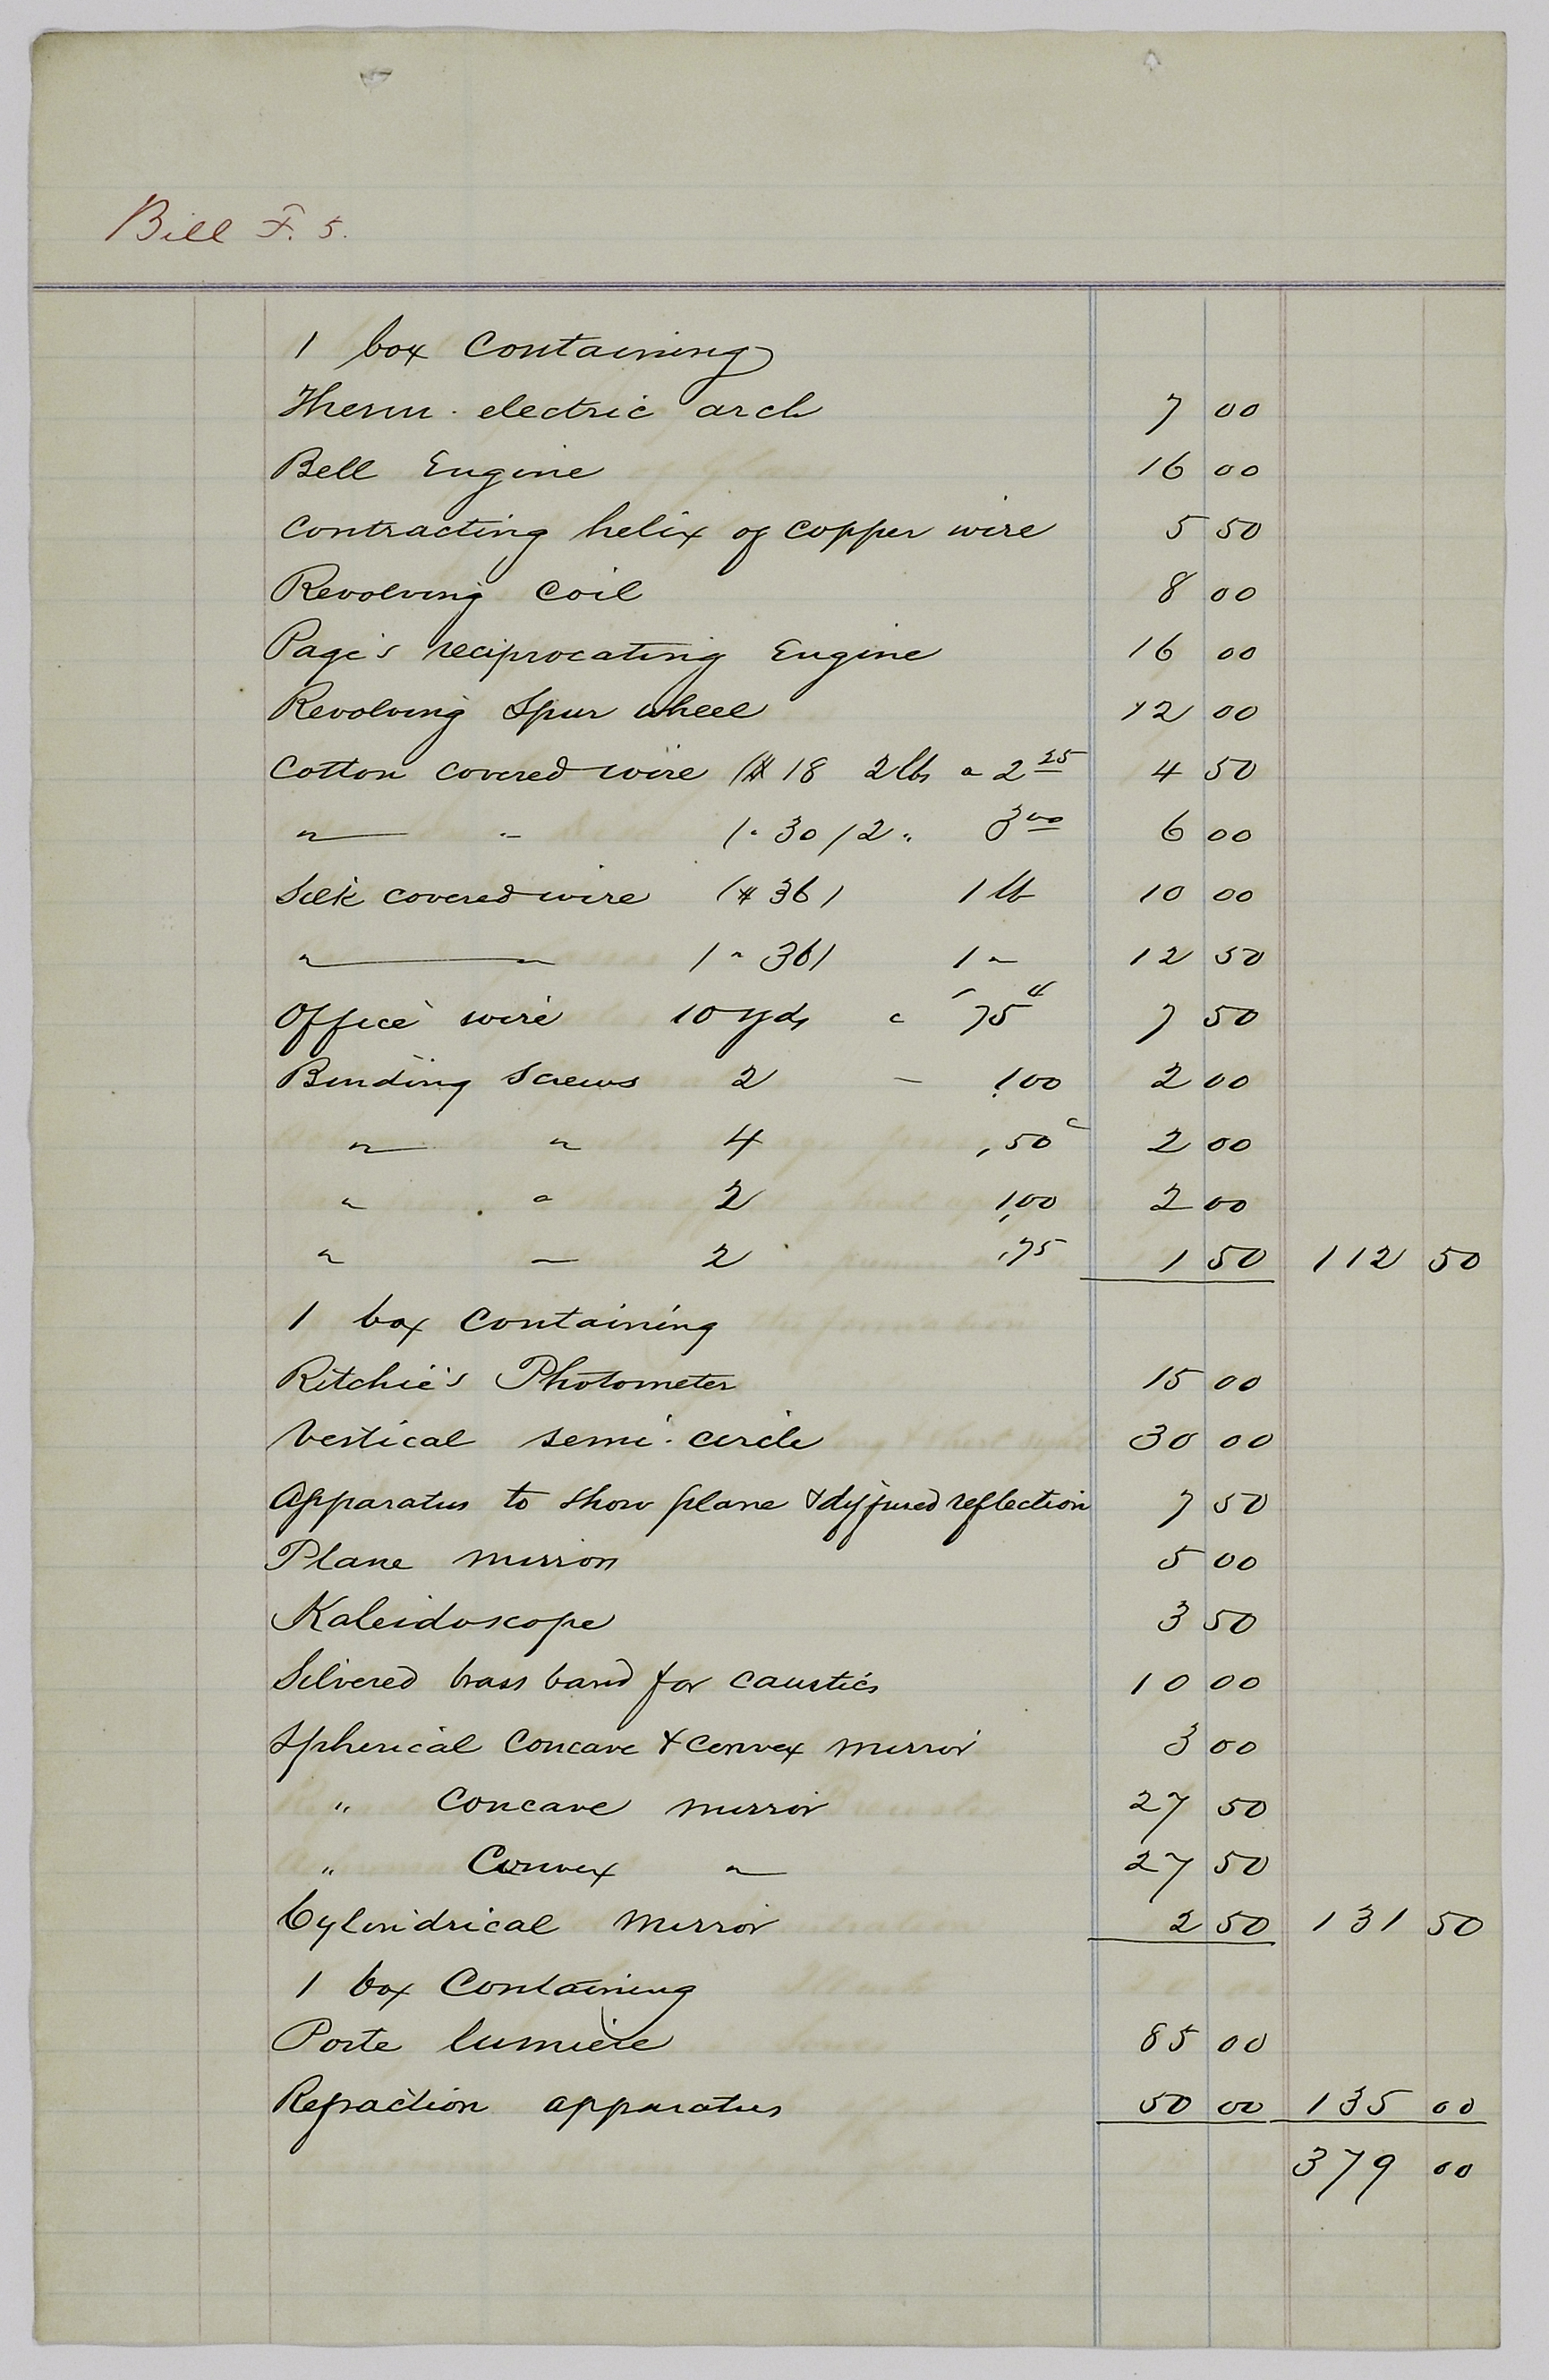 Bill F. 5.
1 box containing
Therm. electric arch 7 00
Bell Engine 16 00
Contracting helix of copper wire 5 50
Revolving Coil 8 00
Page's reciprocating Engine 16 00
Revolving Spur wheel 12 00
Cotton covered wire (# 18 2 lbs a 2 25 4 50
" " (" 30) 2 " 3 00 6 00
Silk covered wire (# 36) 1 lb 10 00
" " (" 36) 1 " 12 50
Office wire 10 yds 75 7 50
Binding Screws 2 - 1.00 2 00
" " 4 .50c 2 00
" " 2 1.00 2 00
" " 2 .75 1 50 112 50
1 box containing
Ritchie's Photometer 15 00
Vertical semi-circle 30 00
Apparatus to show plane & diffused reflection 7 50
Plane mirror 5 00
Kaleidoscope 3 50
Silvered brass band for caustics 10 00
Spherical Concave & Convex mirror 3 00
" Concave mirror 27 50
" Convex " 27 50
Cylindrical Mirror 2 50 131 50
1 box Containing
Porte lumière 85 00
Refraction apparatus 50 00 135 00
379 00